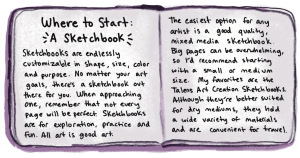 Where to Start:
A Sketchbook
Sketchbooks are endlessly
customizable in shape, size, color
and purpose. No matter your art
goals, there's a sketchbook out
there for you. When approaching
one, remember that not every
page will be perfect. Sketchbooks
are for exploration, practice and
fun. All art is good art.
The easiest option for any
artist is a good quality,
mixed media sketchbook.
Big pages can be overwhelming,
so I'd recommend starting
with a small or medium
size. My favorites are the
Talens Art Creation Sketchbooks.
Although they're better suited
for dry mediums, they hold
a wide variety of materials
and are convenient for travel.